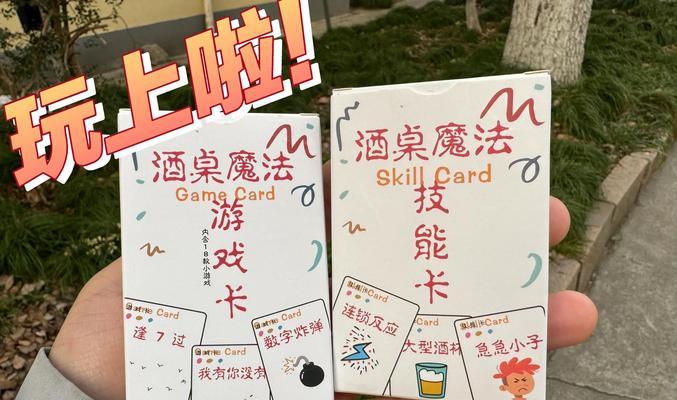 玩上啦!
酒桌魔法
Game Card
游戏卡
内含18款小游戏
Game Card
逢7过
Game Card
我有你没有
Game Card
数字炸弹
酒桌魔法
Skill Card
技能卡
Skill Card
连锁反应
大型酒杯
Skill Card
急急小子